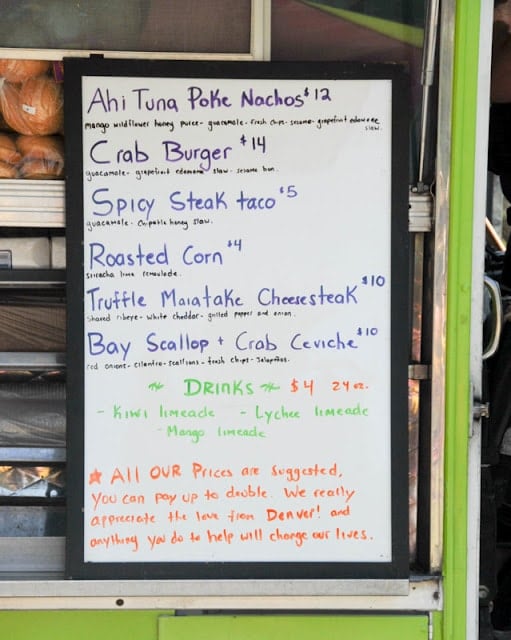 Ahi Tuna Poke Nachos $12
mango wildflower honey puree - guacamole - fresh chips - sesame - grapefruit edamame
slaw.
Crab Burger $14
guacamole - grapefruit edamame slaw - sesame bun.
Spicy Steak taco $5
guacamole - chipotle honey slaw.
Roasted Corn $4
sriracha lime remoulade.
Truffle Maiatake Cheesesteak $10
shaved ribeye - white cheddar - grilled pepper and onion.
Bay Scallop + Crab Ceviche $10
red onions - cilantro - scallions - fresh chips - jalapeños.
Drinks $4 24 oz.
- Kiwi limeade - Lychee limeade
- Mango limeade
★ All OUR Prices are Suggested,
you can pay up to double. We really
appreciate the love from Denver! and
anything you do to help will change our lives.